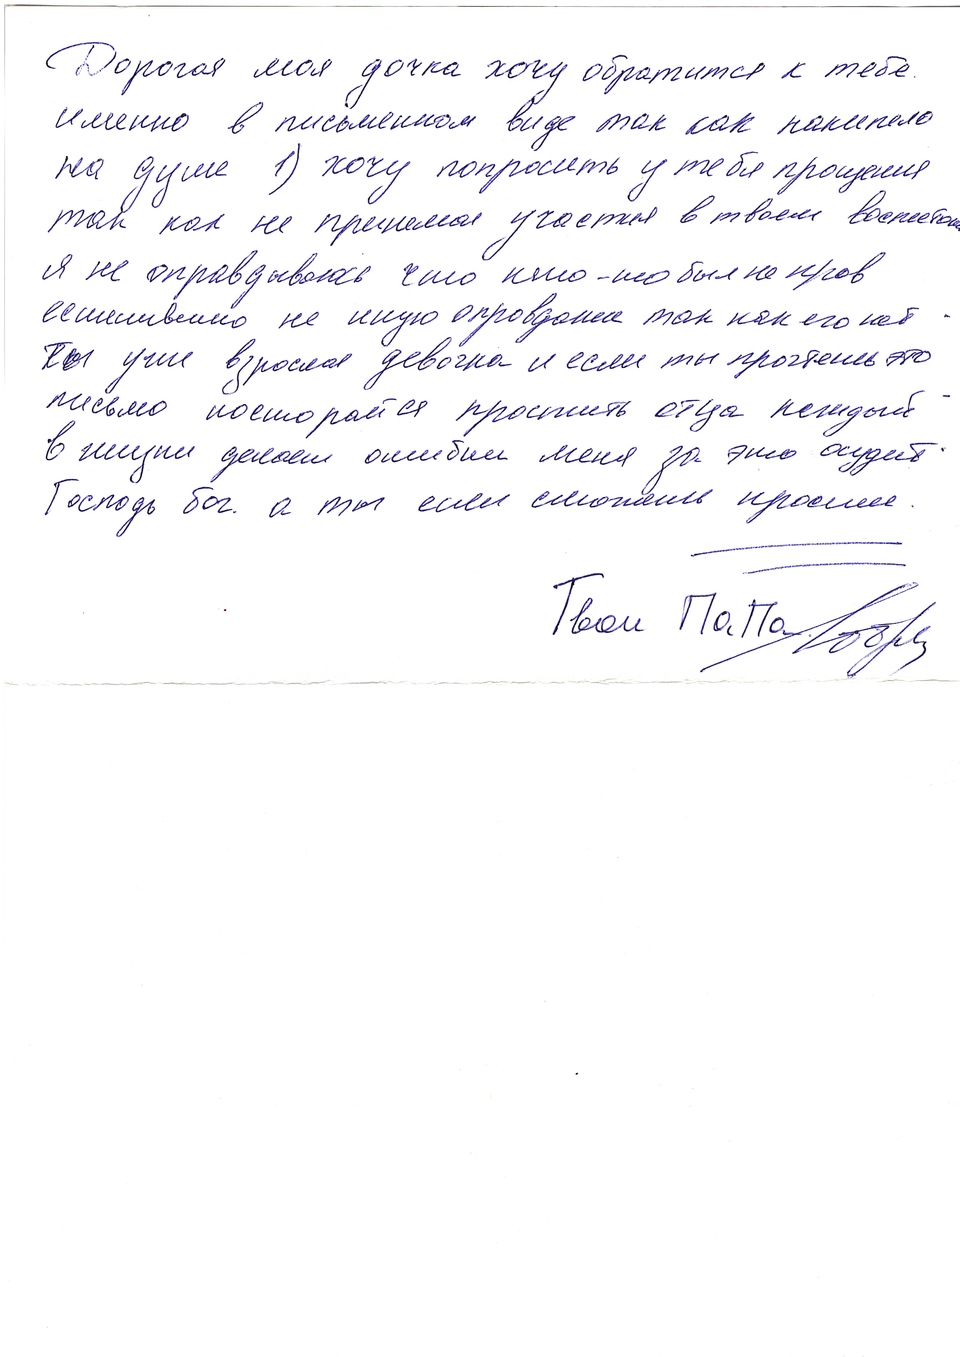 Дорогая моя дочка хочу обратится к тебе.
именно в письменном виде так как накипело
на душе 1) хочу попросить у тебя прощения
так как не принимал участия в твоем
я не оправдываюсь что кто-то был не прав
не ищу оправдания так как его нет.
Ты уже взрослая девочка и если ты прочтешь это
письмо постарайся простить отца каждый
в жизни делает ошибки меня за это осудит
Господь бог. а ты если сможешь прости.
Твой ПаПа